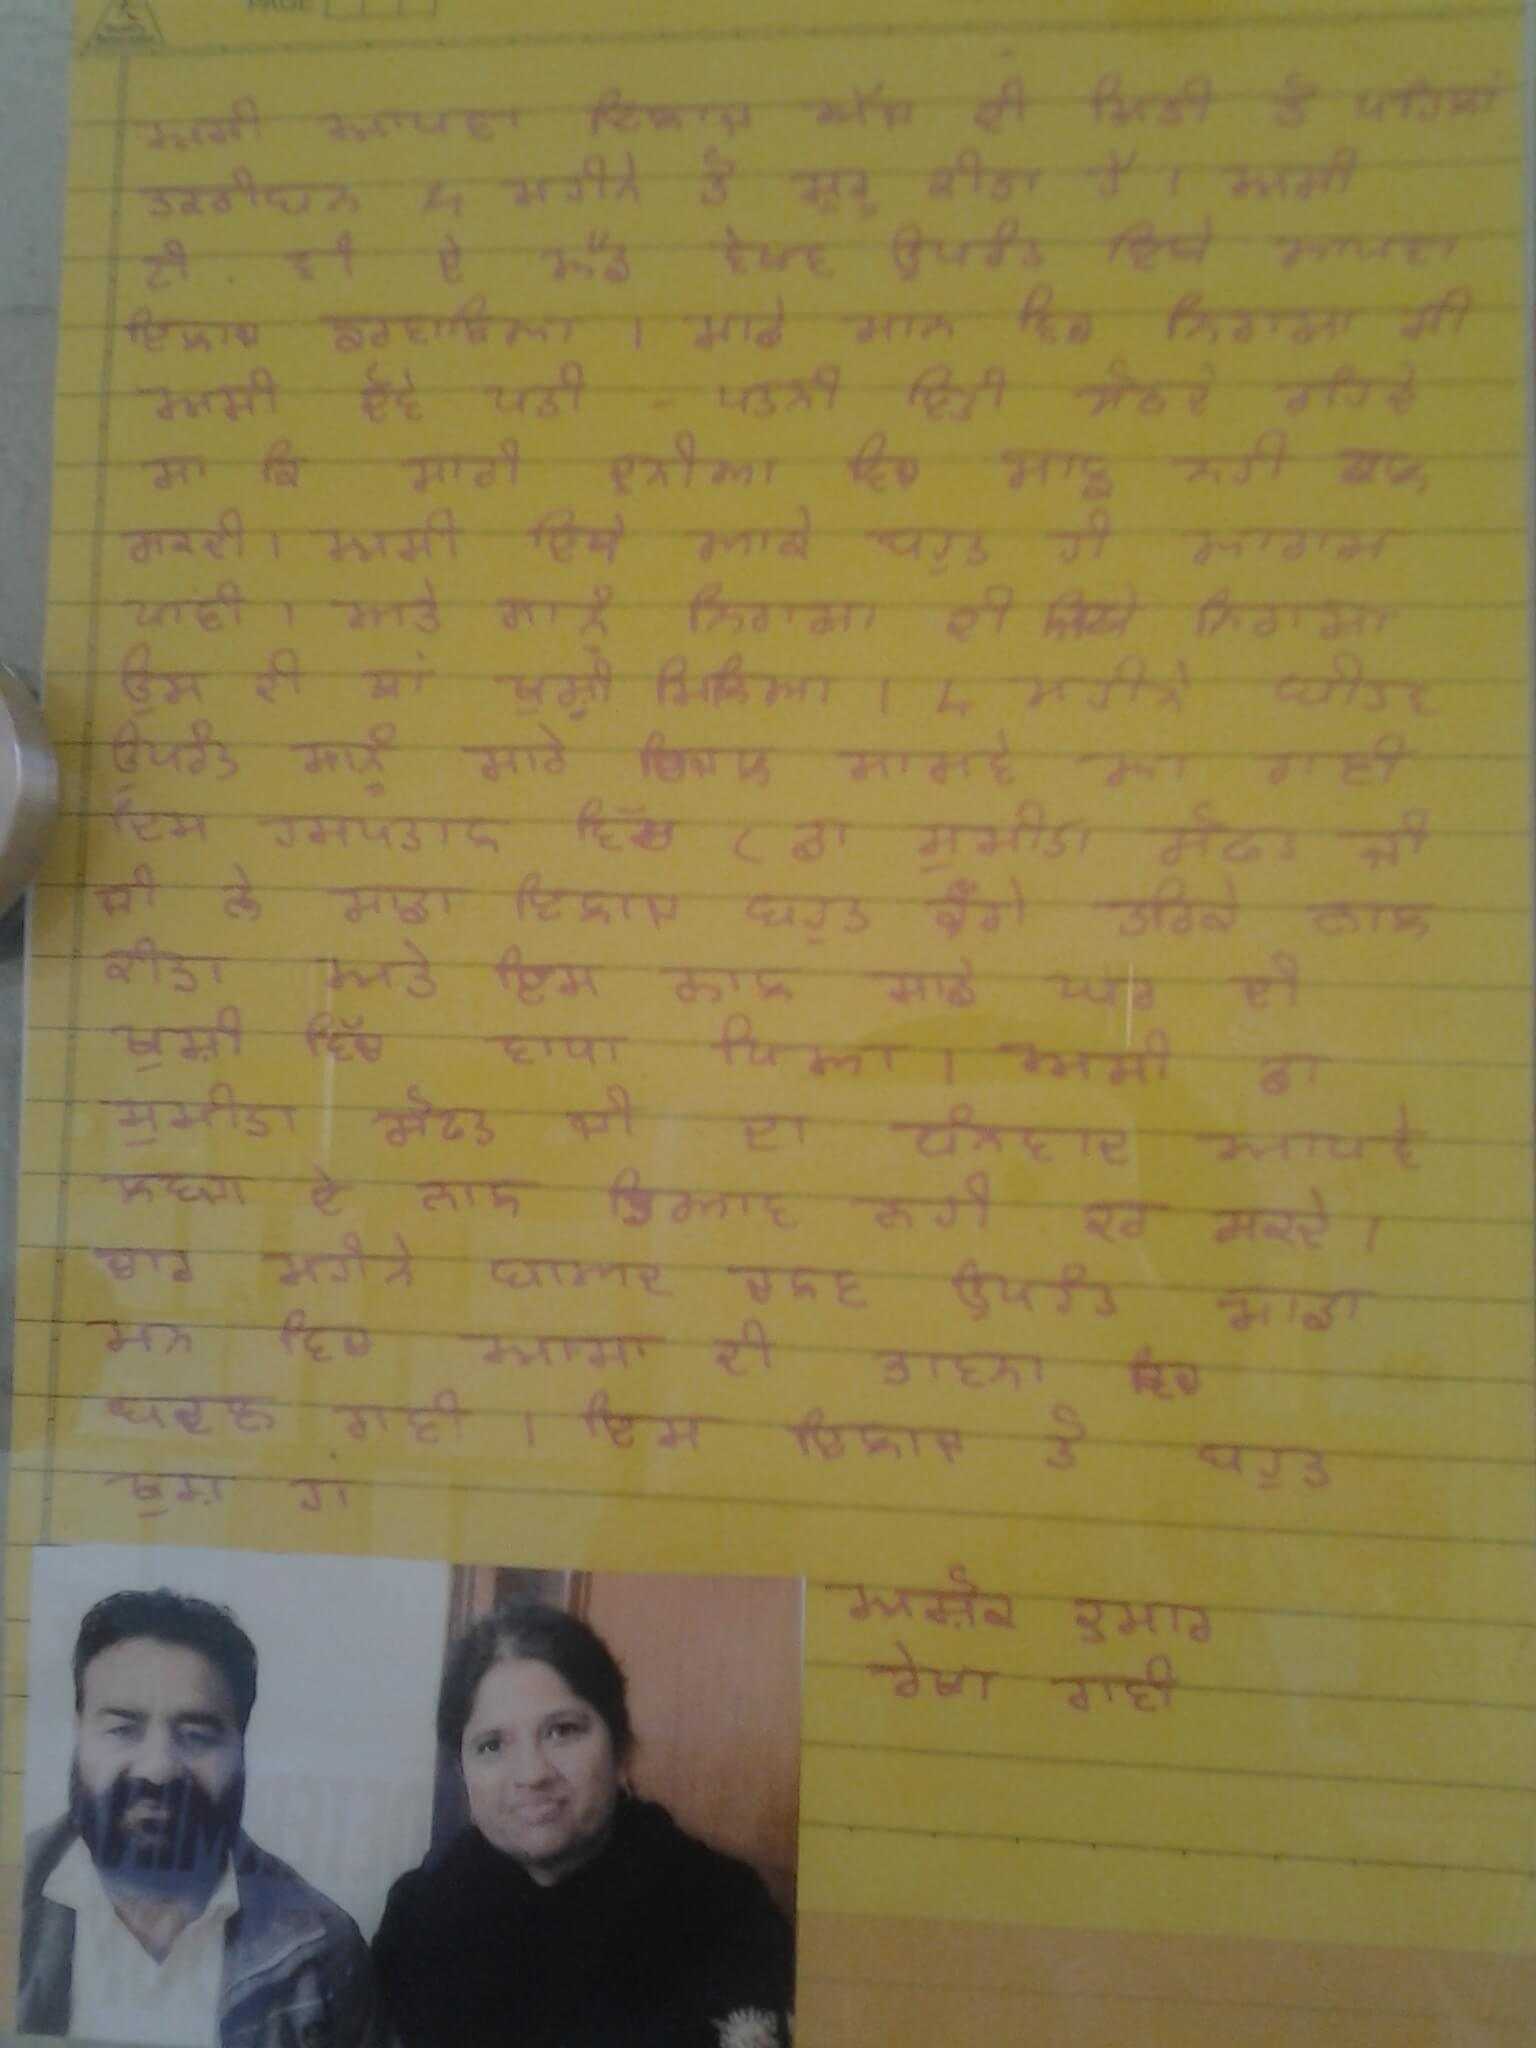 PAGE
ਅਸੀ ਆਪਣਾ ਇਲਾਜ ਅੱਜ ਦੀ ਮਿਤੀ ਤੋਂ ਪਹਿਲਾਂ
ਤਕਰੀਬਨ 4 ਮਹੀਨੇ ਤੋਂ ਸ਼ੁਰੂ ਕੀਤਾ ਹੈ । ਅਸੀ
ਟੀ ਵੀ ਦੇ ਐਡ ਵੇਖਣ ਉਪਰੰਤ ਇਥੇ ਆਪਣਾ
ਇਲਾਜ ਕਰਵਾਇਆ । ਸਾਡੇ ਮਾਨ ਵਿਚ ਨਿਰਾਸਾ ਸੀ
ਅਸੀ ਦੋਂਵੇ ਪਤੀ - ਪਤਨੀ ਇਹੀ ਸੋਚਦੇ ਰਹਿਦੇ
ਸਾ ਕਿ ਸਾਰੀ ਦੁਨੀਆ ਵਿਚ ਸਾਨੂ ਨਹੀ
ਸਕਦੀ । ਅਸੀ ਇਥੇ ਆਕੇ ਬਹੁਤ ਹੀ ਆਰਾਮ
ਪਾਈ । ਅਤੇ ਸਾਨੂੰ ਨਿਰਾਸਾ ਦੀ ਨਿਰਾਸਾ
ਉਸ ਦੀ ਥਾਂ ਖੁਸ਼ੀ ਮਿਲਿਆ । 4 ਮਹੀਨੇ ਬੀਤਣ
ਉਪਰੰਤ ਸਾਨੂੰ ਸਾਰੇ ਸਾਮਣੇ ਆ ਗਈ
ਇਸ ਹਸਪਤਾਲ ਵਿੱਚ ( ਡਾ ਸੁਮੀਤਾ ਸੋਫਤ ਜੀ
ਜੀ ਨੇ ਸਾਡਾ ਇਲਾਜ ਬਹੁਤ ਚੰਗੇ ਤਰਿਕੇ ਨਾਲ
ਕੀਤਾ ਅਤੇ ਇਸ ਨਾਲ ਸਾਡੇ ਘਰ ਦੀ
ਖੁਸ਼ੀ ਵਿੱਚ ਵਾਧਾ ਪਿਆ । ਅਸੀ ਡਾ
ਸੁਮੀਤਾ ਸੋਫਤ ਜੀ ਦਾ ਧੰਨਵਾਦ ਆਪਣੇ
ਲਬਜਾ ਦੇ ਨਾਲ ਬਿਆਨ ਨਹੀ ਕਰ ਸਕਦੇ ।
ਚਾਰ ਮਹੀਨੇ ਬਾਅਦ ਚਲਣ ਉਪਰੰਤ ਸਾਡਾ
ਮਨ ਵਿਚ ਆਸਾ ਦੀ ਭਾਵਨਾ ਵਿਚ
ਬਦਲ ਗਈ । ਇਸ ਇਲਾਜ ਤੋ ਬਹੁਤ
ਖੁਸ਼ ਹਾਂ
ਅਸ਼ੋਕ ਕੁਮਾਰ
ਰੇਖਾ ਰਾਣੀ